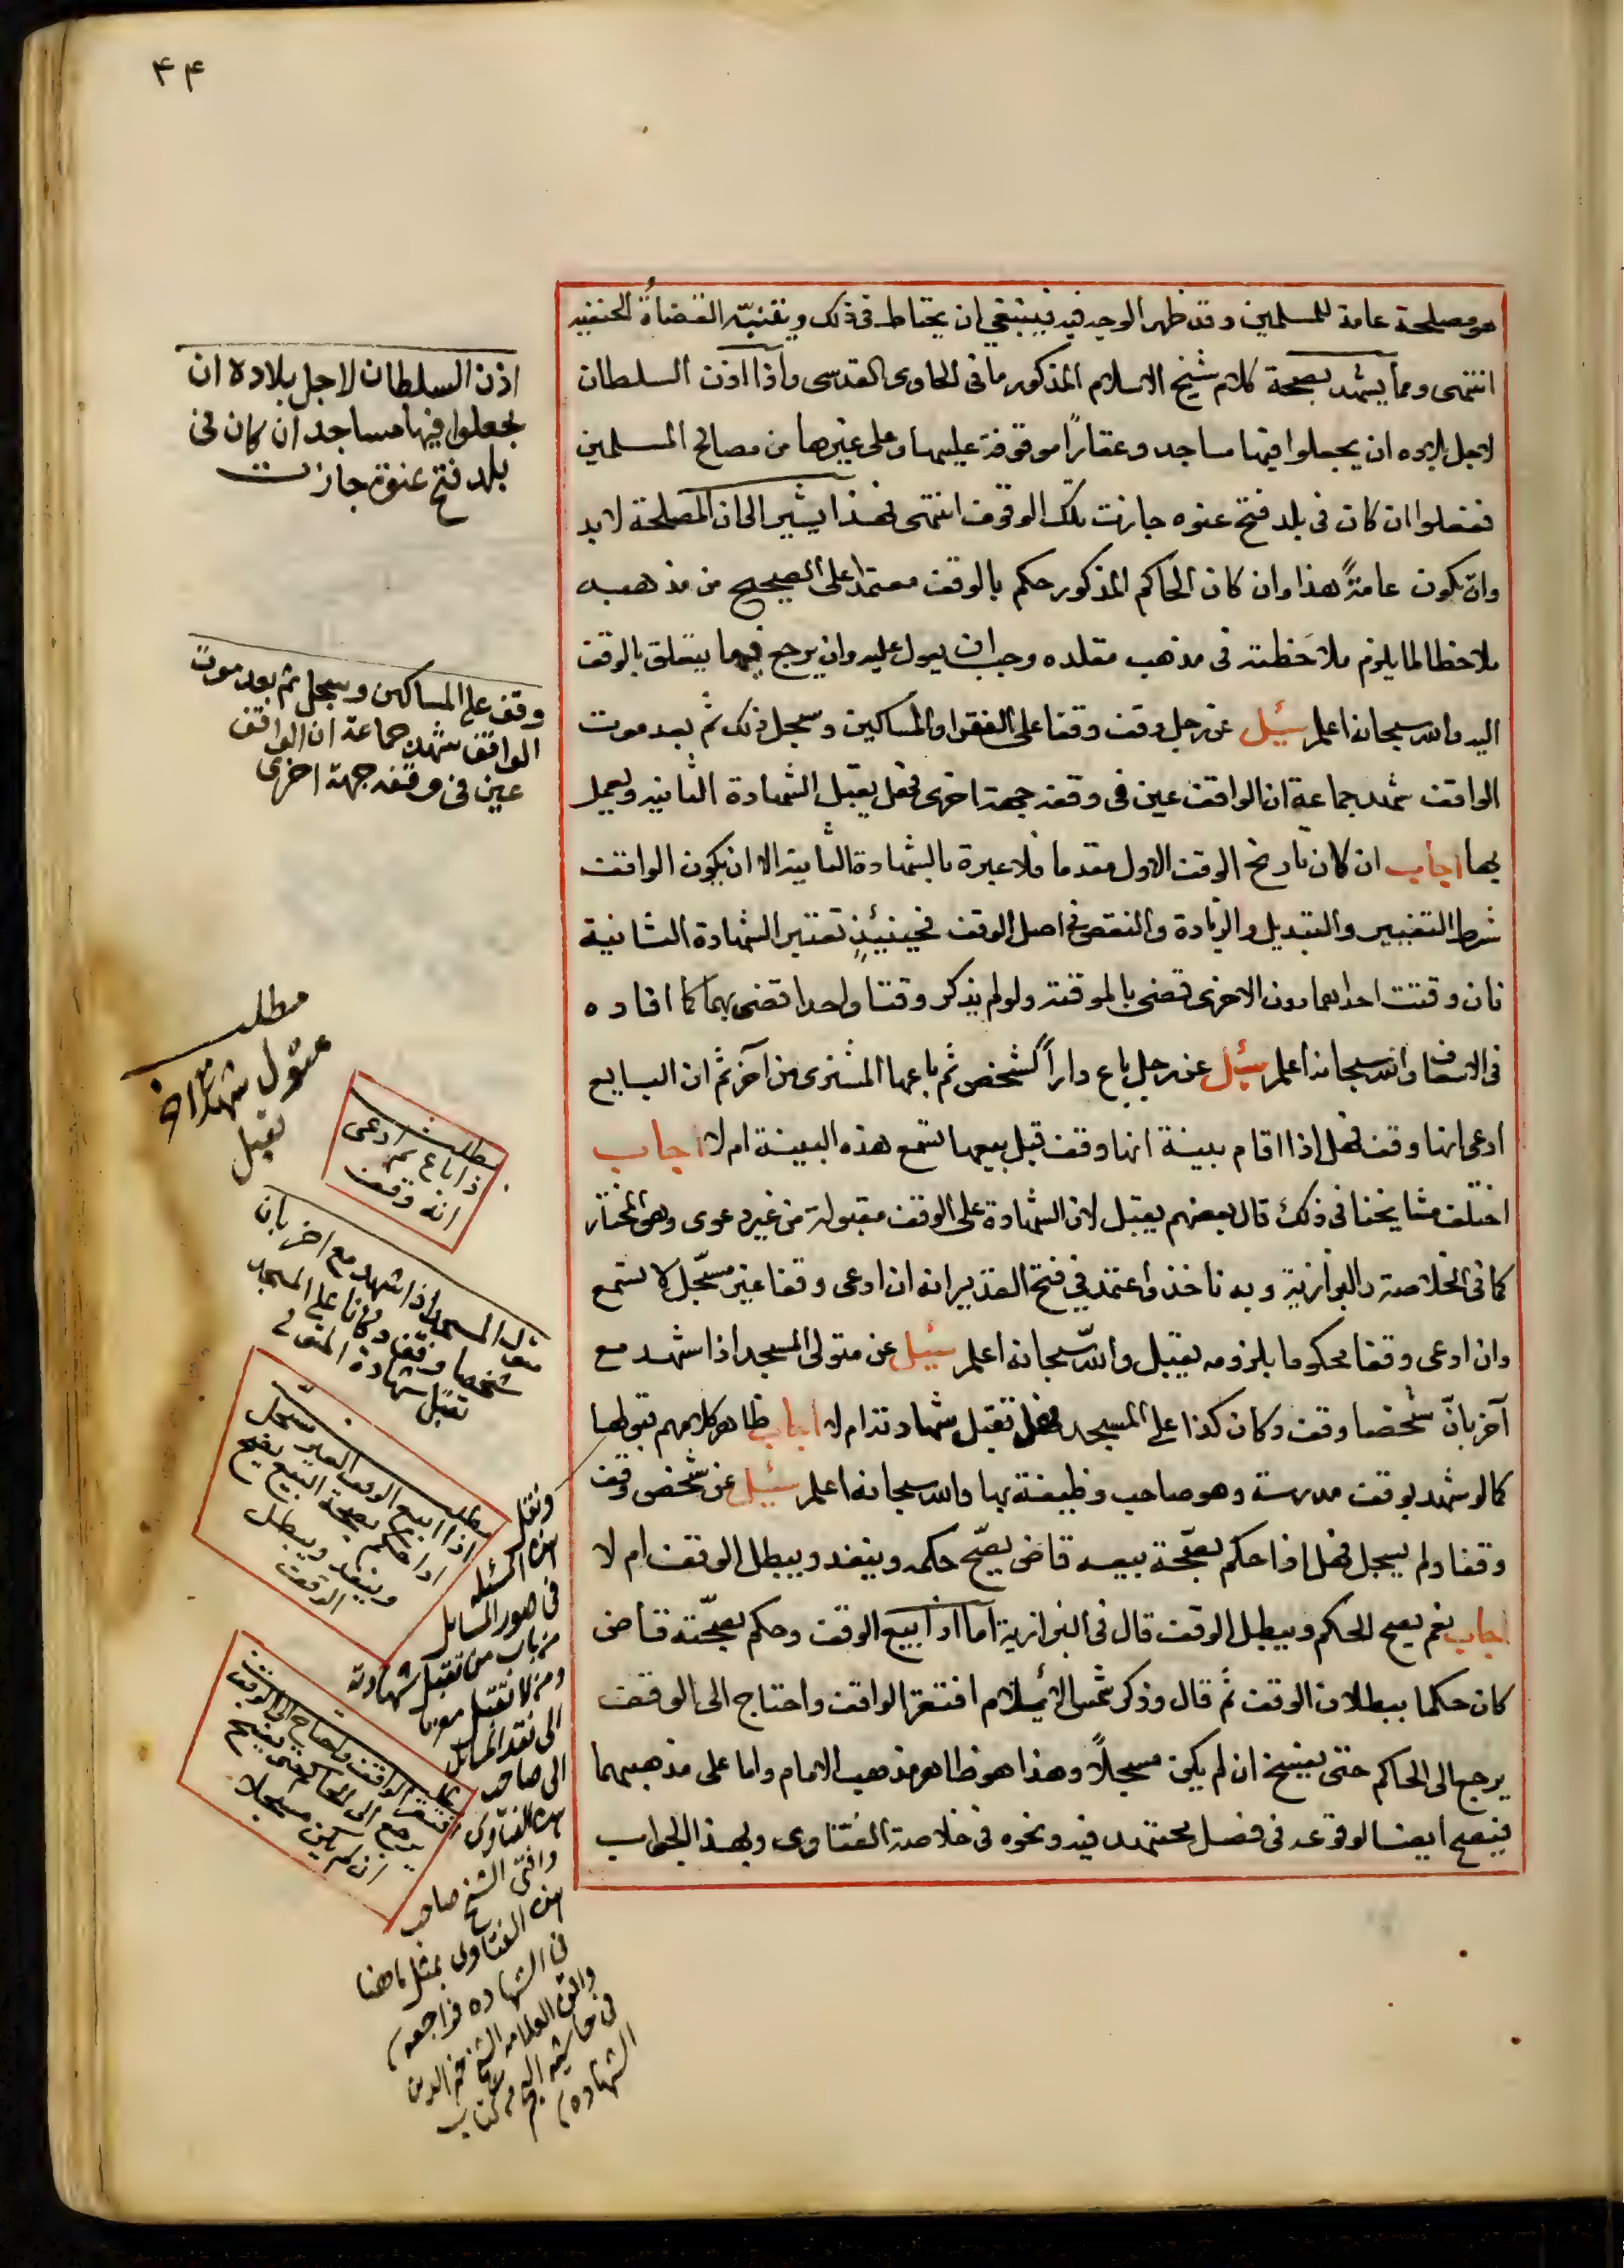 ۴۴
هو مصلحة عامة للمسلمين وقد ظهر الوجه فيه فينبغي ان يحتاط في ذلك ويتنبه القضاة الحنفيه
انتهى ومما يشهد بصحة كلام شيخ الاسلام المذكور ما في الحاوى القدسى واذا اذن السلطان
لاجل بلاده ان يجعلوا فيها مساجد وعقارًا موقوفة عليها وعلى غيرها من مصالح المسلمين
ففعلوا ان كان في بلد فتح عنوه جازت تلك الوقوف انتهى فهذا يشير الى ان المصلحة لابد
وان تكون عامةً هذا وان كان الحاكم المذكور حكم بالوقف معتمدا على الصحيح من مذهبه
ملاحظا لما يلزم ملاحظته فى مذهب مقلده وجب ان يعول عليه وان يرجع فيما يتعلق بالوقف
اليه والله سبحانه اعلم سئل عن رجل وقف وقفا على الفقرا والمساكين وسجل ذلك ثم بعد موت
الواقف شهد جماعة ان الواقف عين فى وقفه جهة اخرى فهل يقبل الشهادة الثانيه ويعمل
بها اجاب ان كان تاريخ الوقف الاول مقدما فلا عبرة بالشهادة الثانية الا ان يكون الواقف
شرط التغيير والتبديل والزيادة والنقص في اصل الوقف فحينئذٍ تعتبر الشهادة الثانية
فان وقتت احداهما دون الاخرى قضى بالموقته ولو لم يذكر وقتا واحدا قضى بهما كما افاده
فى الاسعاف والله سبحانه اعلم سئل عن رجل باع داراً لشخص ثم باعها المشترى من آخر ثم ان البايع
ادعى انها وقف فهل اذا اقام بينة انها وقف قبل بيعها تسمع هذه البينة ام لا اجاب
اختلف مشايخنا فى ذلك قال بعضهم يقبل لان الشهادة على الوقف مقبولة من غير دعوى وهو المختار
كما فى الخلاصة والبزازية وبه ناخذ واعتمد في فتح القدير انه ان ادعى وقفا غير مسجّل لا تسمع
وان ادعى وقفا محكوما بلزومه يقبل والله سبحانه اعلم سئل عن متولى المسجد اذا شهد مع
آخر بانّ شخصا وقف وكان كذا على المسجد فهل تقبل شهادته ام لا اجاب ظاهر كلامهم قبولها
كما لو شهد بوقف مدرسة وهو صاحب وظيفة بها والله سبحانه اعلم سئل عن شخص وقف
وقفا ولم يسجل فهل اذا حكم بصحّة بيعه قاض يصحّ حكمه وينفد ويبطل الوقف ام لا
اجاب نعم يصح الحكم ويبطل الوقف قال فى البزازية اما اذا ابيع الوقف وحكم بصحّته قاض
كان حكما ببطلان الوقف ثم قال وذكر شمس الاسلام افتقر الواقف واحتاج الى الوقف
يرجع الى الحاكم حتى يفسخ ان لم يكن مسجلاً وهذا هو ظاهر مذهب الامام واما على مذهبهما
فيصح ايضا لوقوعه فى فصل مجتهد فيه ونحوه فى خلاصة الفتاوى وبهذا الجواب
اذن السلطان لاجل بلاده ان
يجعلوا فيها مساجد ان كان فى
بلد فتح عنوة جازت
وقف على المساكين وسجل ثم بعد موت
الواقف شهد جماعة ان الواقف
عين فى وقفه جهة اخرى
مطلب
تقبل
مطلب
اذا باع ثم ادعى
انه وقف
متولى المسجد اذا شهد مع اخر بان
شخصا وقف وكانا على المسجد
تقبل شهادة المتولى
مطلب
اذا ابيع الوقف الغير مسجل
اذا حكم بصحة البيع يصح
وينفد ويبطل
الوقف
مطلب
افتقر الواقف واحتاج الى الوقف
يرجع الى الحاكم حتى يفسخ
ان لم يكن مسجلا
ونقل
هذه المسئله
فى صور المسايل
من باب من تقبل شهادته
ومن لا تقبل معزيا
الى نقد المسايل
الى صاحب
هذه الفتاوى
وافتى الشيخ صاحب
هذه الفتاوى بمثل ما هنا
فى الشهاده فراجعه
وافتى العلامه الشيخ خير الدين
فى حاشيه البحر من كتاب
الشهاده